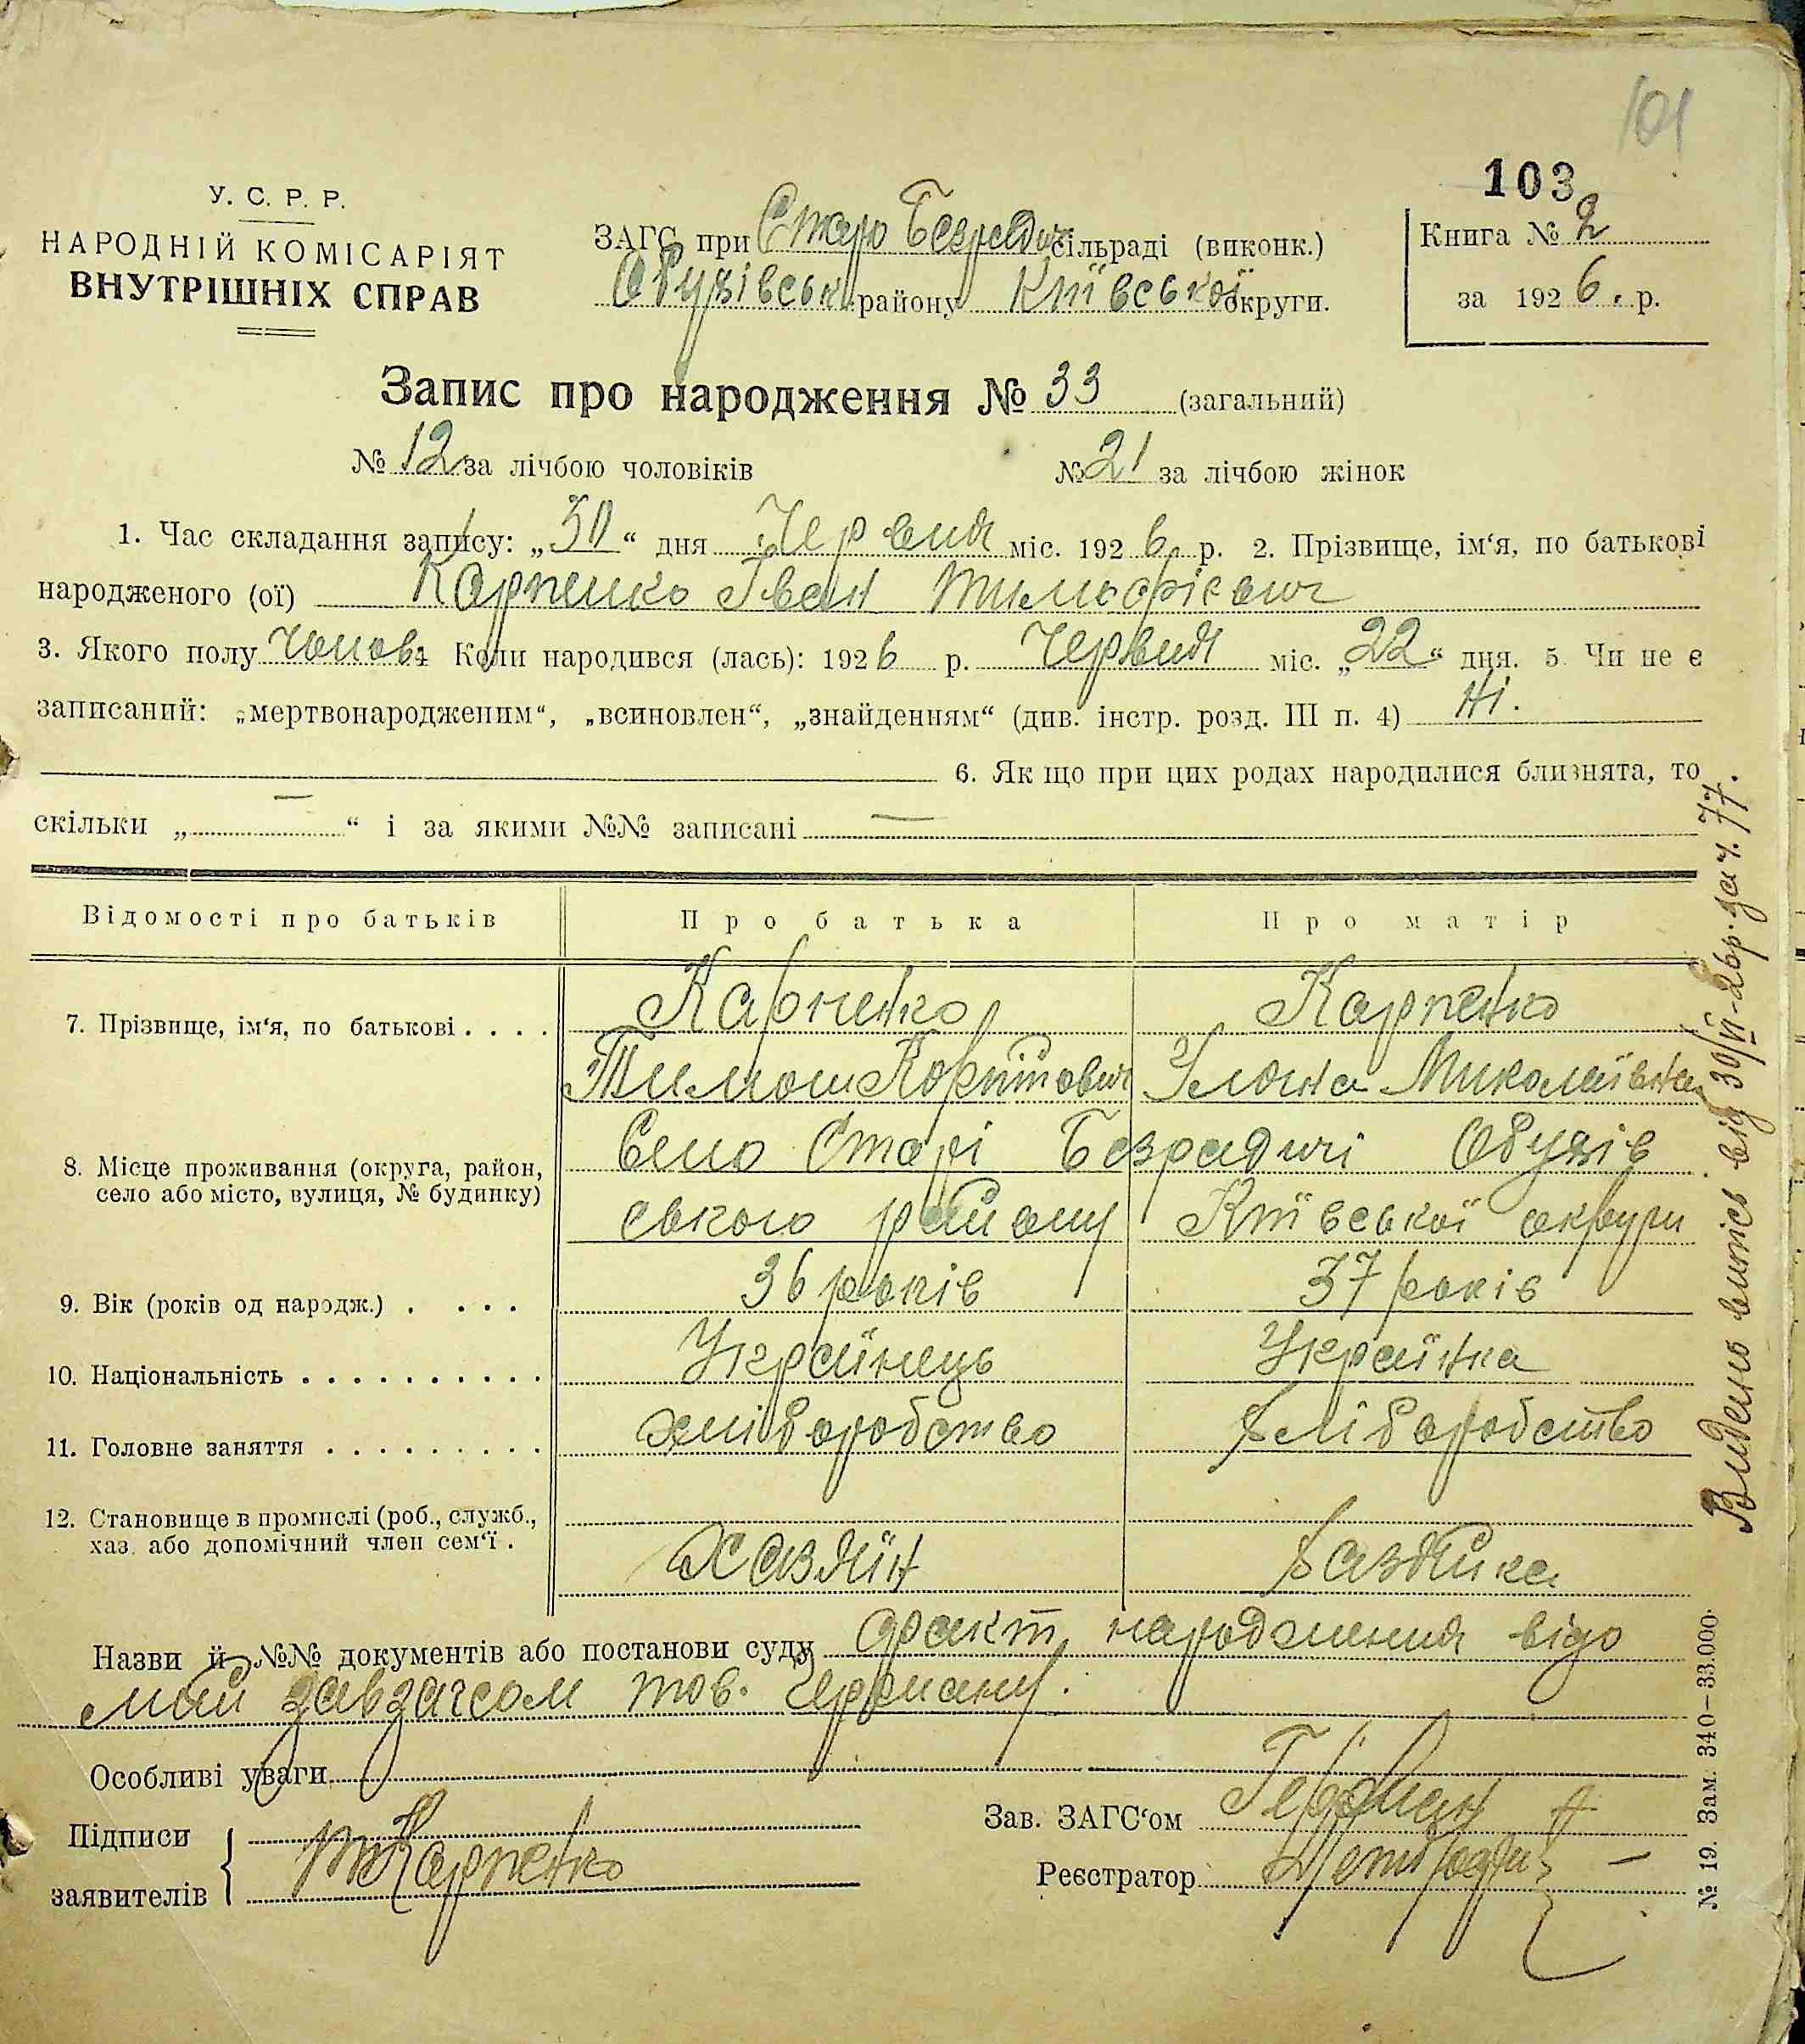 101
103
У. С. Р. Р.
НАРОДНІЙ КОМІСАРІЯТ
ВНУТРІШНІХ СПРАВ
ЗАГС при Старо Безрадич сільраді (виконк.)
Обухівськ. району Київської округи.
Книга № 2
за 1926. р.
Запис про народження № 33 (загальний)
№ 12 за лічбою чоловіків № 21 за лічбою жінок
1. Час складання запису: „30“ дня Червня міс. 1926 р. 2. Прізвище, ім‘я, по батькові
народженого (ої) Карпенко Іван
3. Якого полу чолов. 4 Коли народився (лась): 1926 р. Червня міс. „22“ дня. 5 Чи не є
записаний: „мертвонародженим“, „всиновлен“, „знайденням“ (див. інстр. розд. III п. 4) Ні.
6. Як що при цих родах народилися близнята, то
скільки „ — “ і за якими №№ записані —
Відомості про батьків Про батька Про матір
7. Прізвище, ім‘я, по батькові . . . . Карпенко Карпенко
Тимош Микалаївна
8. Місце проживання (округа, район, село або місто, вулиця, № будинку) Село Старі Безрадичі Обухів
ського району Київської округи
9. Вік (років од народж.) . . . . 36 років 37 років
10. Національність . . . . . . . . . . . Українець Українка
11. Головне заняття . . . . . . . . . . хліборобство хліборобство
12. Становище в промислі (роб., служб.,
хаз. або допомічний член сем‘ї . Хазяїн хазяйка
Назви й №№ документів або постанови суду факт народження відо
мий завзагсом тов. Герману.
Особливі уваги
Підписи
заявителів
Т Карпенко
Зав. ЗАГС‘ом Герман
Реєстратор
Видено витісь від 30/VI-26р. за ч. 77.
№ 19. Зам. 340—33.000.